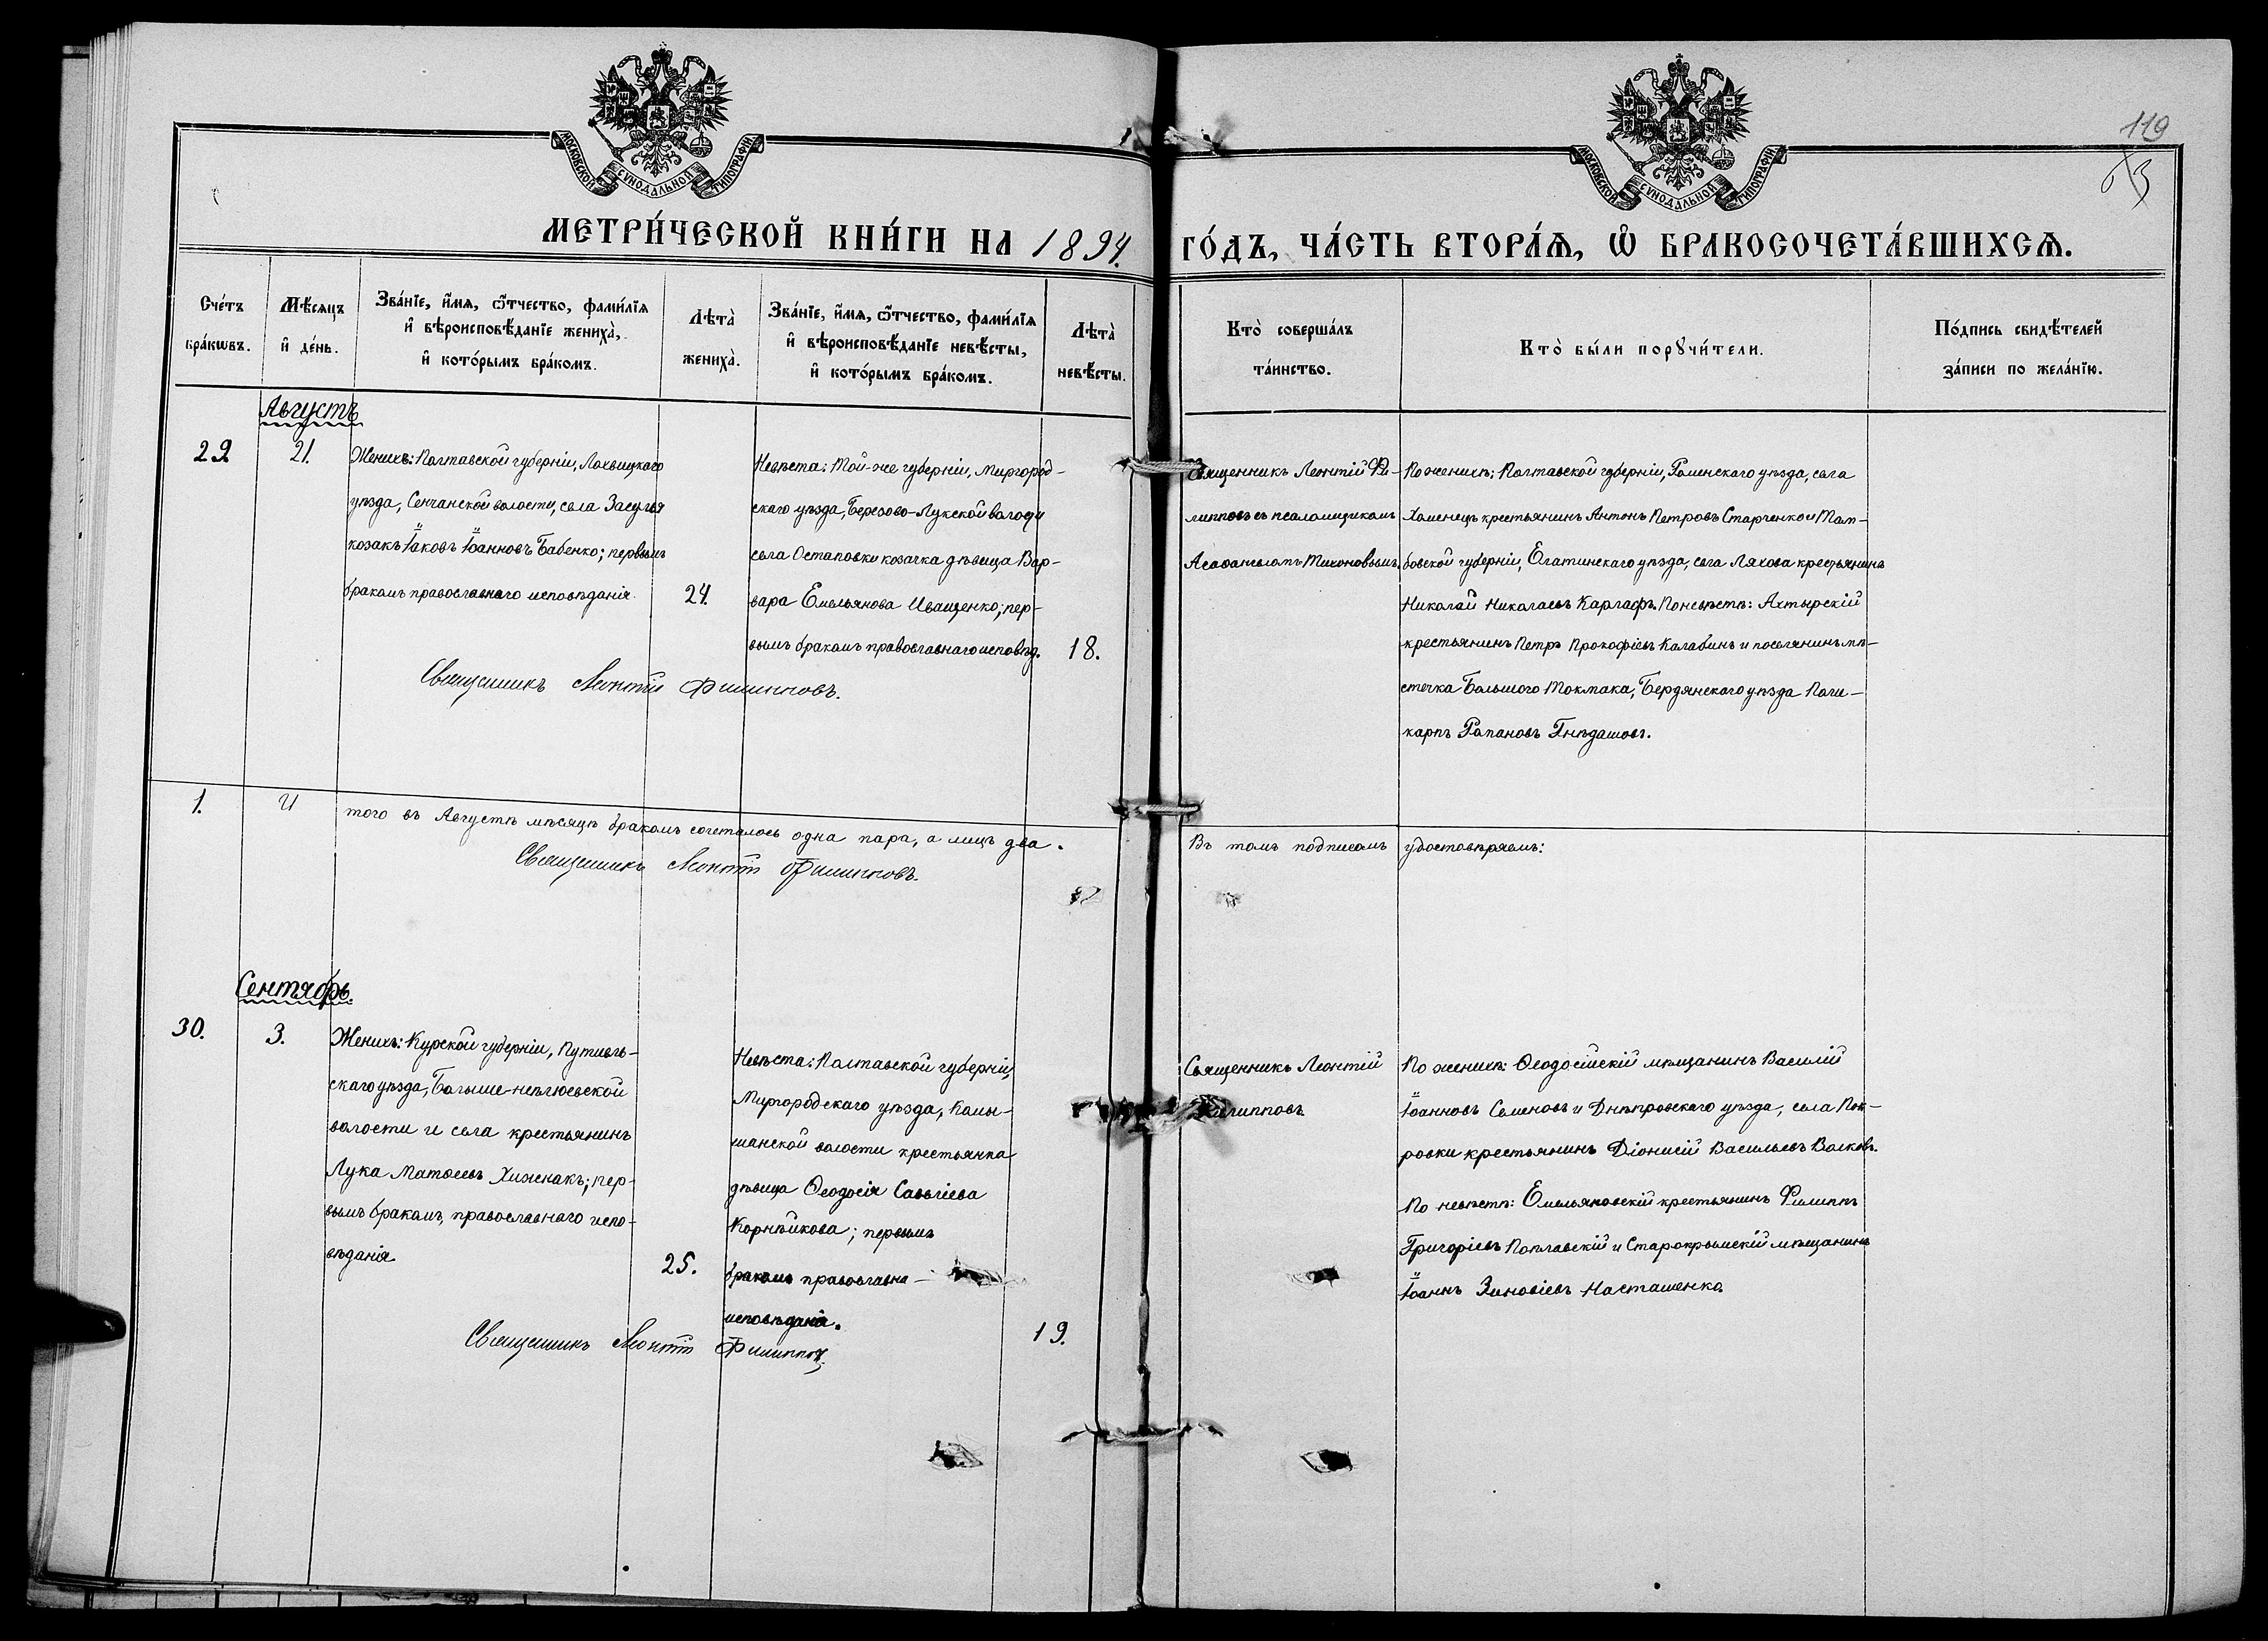 МОСКОВСКОЙ СѴНОДАЛЬНОЙ ТИПОГРАФІИ
МОСКОВСКОЙ СѴНОДАЛЬНОЙ ТИПОГРАФІИ
119
МЕТРИ́ЧЕСКОЙ КНИ́ГИ НА 1894.
ГО́ДЪ, ЧА́СТЬ ВТОРА́Ѧ, Ѽ БРАКОСОЧЕТА́ВШИХСѦ.
Сче́тъ бра́кѡвъ.
Мѣ́сяцъ и де́нь.
Зва́нїе, и́мя, ѻ҆́тчество, фами́лїя и вѣроисповѣ́данїе жениха̀, и кото́рымъ бра́комъ.
Лѣта̀ жениха̀.
Зва́нїе, и́мя, ѻ҆́тчество, фами́лїя и вѣроисповѣ́данїе невѣ́сты, и кото́рымъ бра́комъ.
Лѣта̀ невѣ́сты.
Кто̀ соверша́лъ та́инство.
Кто̀ бы́ли порꙋчи́тели.
По́дпись свидѣ́телей за́писи по жела́нїю.
Августъ
29.
21.
Женихъ: Полтавской губерніи, Лохвицкаго
уѣзда, Сенчанской волости, села Засулья
козакъ Іаковъ Іоанновъ Бабенко; первымъ
бракомъ православнаго исповѣданія.
24.
Невѣста: Той-же губерніи, Миргород-
скаго уѣзда, Березово-Лукской волости
села Остаповки козачка дѣвица Вар-
вара Емельянова Иващенко; пер-
вымъ бракомъ православнаго исповѣд.
18.
Священникъ Леонтій Филипповъ.
Священникъ Леонтій Фи-
липповъ съ псаломщикомъ
Тихоновымъ.
По женихѣ: Полтавской губерніи, Роменскаго уѣзда, села
Хоменецъ крестьянинъ Антонъ Петровъ Старченко и Там-
бовской губерніи, Елатинскаго уѣзда, села Ляхова крестьянинъ
Николай Николаевъ По невѣстѣ: Ахтырскій
крестьянинъ Петръ Прокофіевъ Калабинъ и поселянинъ мѣ-
стечка Большого Токмака, Бердянскаго уѣзда Поли-
карпъ Гнѣдашовъ.
1.
Итого въ Августѣ мѣсяцѣ бракомъ сочеталось одна пара, а лицъ два.
Священникъ Леонтій Филипповъ.
Въ томъ подписомъ удостовѣряемъ:
Сентябрь.
30.
3.
Женихъ: Курской губерніи, Путивль-
скаго уѣзда, Больше-неплюевской
волости и села крестьянинъ
Лука Матѳеевъ Хижнакъ; пер-
вымъ бракомъ, православнаго испо-
вѣданія
25.
Невѣста: Полтавской губерніи,
Миргородскаго уѣзда, Камы-
шанской волости крестьянка
дѣвица Ѳеодосія Савеліева
Корнѣйкова; первымъ
бракомъ православна-
исповѣданія.
19.
Священникъ Леонтій Филипповъ.
Священникъ Леонтій
Филипповъ
По женихѣ: Ѳеодосійскій мѣщанинъ Василій
Іоанновъ Семеновъ и Днѣпровскаго уѣзда, села Пок-
ровки крестьянинъ Діонисій Васильевъ Волковъ.
По невѣстѣ: Емельяновскій крестьянинъ Филиппъ
Григоріевъ Поплавскій и Старокрымскій мѣщанинъ
Іоаннъ Зиновіевъ Насташенко.